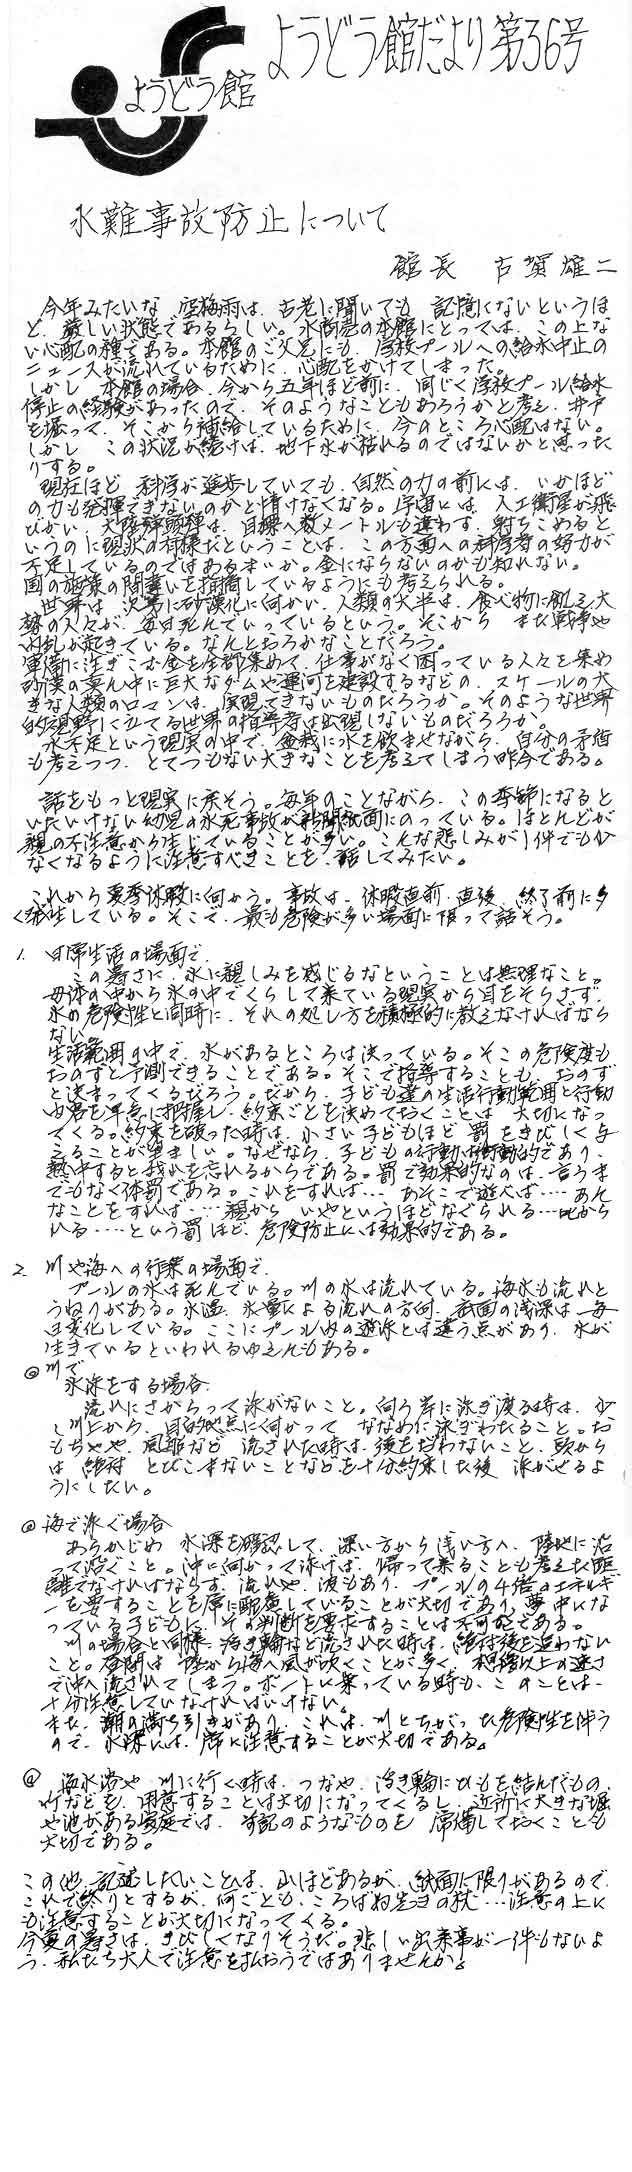 ようどう館だより第36号
ようどう館
水難事故防止について
館長 古賀雄二
今年みたいな 空梅雨は、古老に聞いても 記憶にないというほ
ど、厳しい状態であるらしい。水商売の本館にとっては、この上な
い心配の種である。本館のご父兄にも、学校プールへの給水中止の
ニュースが流れているために、心配をかけてしまった。
しかし 本館の場合、今から五年ほど前に、同じく学校プール給水
停止の経験があったので、そのようなこともあろうかと考え、井戸
を堀って、そこから補給しているために、今のところ心配はない。
しかし この状況が続けば、地下水が枯れるのではないかと思った
りする。
現在ほど 科学が進歩していても、自然の力の前には、いかほど
の力も発揮できないのかと情けなくなる。宇宙には、人工衛星が飛
びかい、大陸弾頭弾は、目標へ数メートルも違わず、射ちこめると
いうのに現状の有様だということは、この方面への科学者の努力が
不足しているのではあるまいか。金にならないのかも知れない。
国の施策の間違いを指摘しているようにも考えられる。
世界は、次第に砂漠化に向かい、人類の大半は、食べ物に飢え、大
勢の人々が、毎日死んでいっているという。そこから また戦争や
内乱が起きている。なんとおろかなことだろう。
軍備に注ぎこむ金を全部集めて、仕事がなく困っている人々を集め
砂漠の真ん中に巨大なダムや運河を建設するなどの、スケールの大
きな人類のロマンは、実現できないものだろうか。そのような世界
的視野に立てる世界の指導者は出現しないものだろうか。
水不足という現実の中で、盆栽に水を飲ませながら、自分の矛盾
も考えつつ、とてつもない大きなことを考えてしまう昨今である。
話をもっと現実に戻そう。毎年のことながら、この季節になると
いたいけない幼児の水死事故が新聞紙面にのっている。ほとんどが
親の不注意から生じていることが多い。こんな悲しみが1件でも少
なくなるように注意すべきことを、話してみたい。
これから夏季休暇に向かう。事故は、休暇直前、直後、終了前に多
く発生している。そこで、最も危険が多い場面に限って話そう。
1. 日常生活の場面で、
この暑さに、水に親しみを感じるなということは無理なこと。
母体の中から水の中でくらして来ている現実から耳をそらさず、
水の危険性と同時に、それの処し方を積極的に教えなければなら
ない。
生活範囲の中で、水があるところは決っている。そこの危険度も
おのずと予測できることである。そこで指導することも、おのず
と決まってくるだろう。だから、子ども達の生活行動範囲と行動
内容を早急に把握し、約束ごとを決めておくことは 大切になっ
てくる。約束を破った時は、小さい子どもほど 罰をきびしく与
えることが望ましい。なぜなら、子どもの行動は衝動的であり、
熱中すると我れを忘れるからである。罰で効果的なのは、言うま
でもなく体罰である。これをすれば… あそこで遊べば…… あん
なことをすれば……親から いやというほどなぐられる…叱から
れる……という罰ほど、危険防止には効果的である。
2. 川や海への行楽の場面で、
プールの水は死んでいる。川の水は流れている。海水も流れと
うねりがある。水温、水量による流れの方向、底面の浅深は一毎
日変化している。ここにプール内の遊泳とは違う点があり、水が
生きているといわれるゆえんもある。
◎川で
水泳をする場合、
流れにさからって泳がないこと。向う岸に泳ぎ渡る時は、少
し川上から、目的地点に向かって ななめに泳ぎわたること。お
もちゃや、風船など 流された時は、後をおわないこと、頭から
は 絶対 とびこまないことなどを十分約束した後 泳がせるよ
うにしたい。
◎海で泳ぐ場合
あらかじめ 水深を確認して、深い方から浅い方へ、陸地に沿
って泳ぐこと。沖に向かって泳げば、帰って来ることも考えた距
離でなければならず、流れや、波もあり、プールの4倍のエネルギ
ーを要することを常に配慮していることが大切であり、夢中にな
っている子どもに、その判断を要求することは不可能である。
川の場合と同様、浮き輪など流された時は、絶対後を追わない
こと。昼間は 陸から海へ風が吹くことが多く、想像以上の速さ
で沖へ流されてしまう。ボートに乗っている時も、このことは、
十分注意していなければいけない。
また、潮の満ち引きがあり、これは、川とちがった危険性を伴う
ので、水深には、常に注意することが大切である。
◎ 海水浴や 川に行く時は、つなや、浮き輪にひもを結んだもの、
竹などを、用意することは大切になってくるし、近所に大きな堀
や池がある家庭では、前記のようなものを 常備しておくことも
大切である。
この他、記述したいことは、山ほどあるが、紙面に限りがあるので、
これで終りとするが、何ごとも、ころばぬ先きの杖…注意の上に
も注意することが大切になってくる。
今夏の暑さは、きびしくなりそうだ。悲しい出来事が一件もないよ
う、私たち大人で注意を払おうではありませんか。